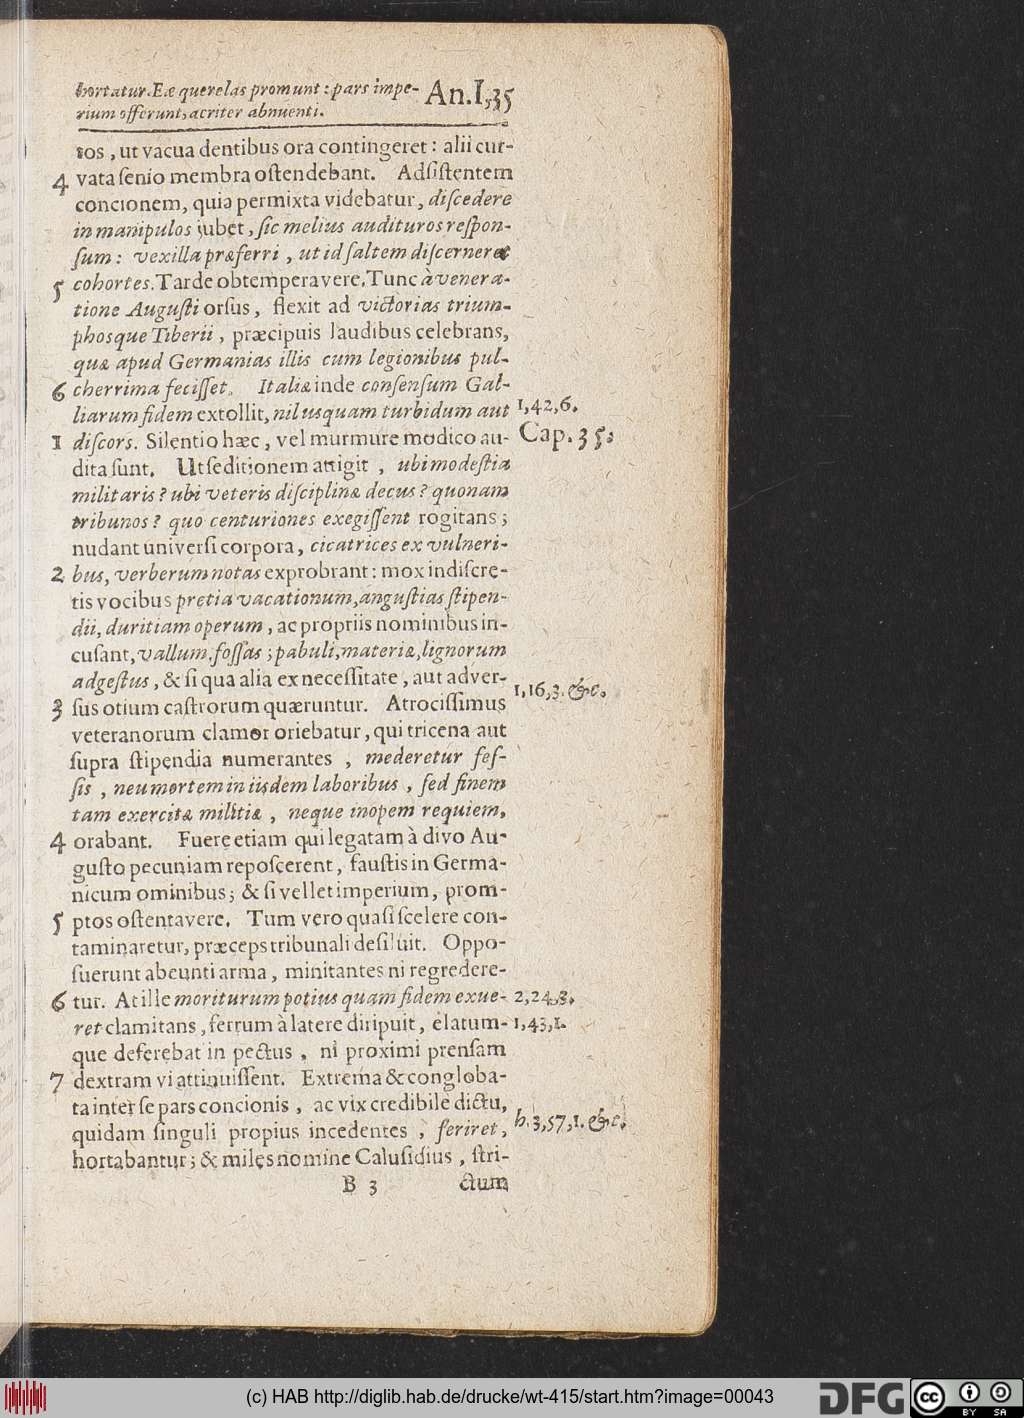 hortatur. Eæ querelas promunt: pars impe-
rium offerunt, acriter abnuenti.
An. I, 35
tos, ut vacua dentibus ora contingeret: alii cur-
4 vata ſenio membra oſtendebant. Adſiſtentem
concionem, quia permixta videbatur, diſcedere
in manipulos jubet, ſic melius audituros reſpon-
ſum: vexilla præferri, ut id ſaltem diſcerneret
5 cohortes. Tarde obtemperavere. Tunc à venera-
tione Auguſti orſus, flexit ad victorias trium-
phosque Tiberii, præcipuis laudibus celebrans,
quæ apud Germanias illis cum legionibus pul-
6 cherrima feciſſet. Italiæ inde conſenſum Gal-
liarum fidem extollit, nil usquam turbidum aut
1,42,6.
1 diſcors. Silentio hæc, vel murmure modico au-
Cap. 35.
dita ſunt. Ut ſeditionem attigit, ubi modeſtia
militaris? ubi veteris diſciplinæ decus? quonam
tribunos? quo centuriones exegiſſent rogitans;
nudant univerſi corpora, cicatrices ex vulneri-
2 bus, verberum notas exprobrant: mox indiſcre-
tis vocibus pretia vacationum, anguſtias ſtipen-
dii, duritiam operum, ac propriis nominibus in-
cuſant, vallum, foſſas; pabuli, materiæ, lignorum
adgeſtus, & ſi qua alia ex neceſſitate, aut adver-
1,16,3. &c.
3 ſus otium caſtrorum quæruntur. Atrociſſimus
veteranorum clamor oriebatur, qui tricena aut
ſupra ſtipendia numerantes, mederetur feſ-
ſis, neu mortem in iisdem laboribus, ſed finem
tam exercitæ militiæ, neque inopem requiem,
4 orabant. Fuere etiam qui legatam à divo Au-
guſto pecuniam repoſcerent, fauſtis in Germa-
nicum ominibus; & ſi vellet imperium, prom-
5 ptos oſtentavere. Tum vero quaſi ſcelere con-
taminaretur, præceps tribunali deſiluit. Oppo-
ſuerunt abeunti arma, minitantes ni regredere-
6 tur. At ille moriturum potius quam fidem exue-
2,24,3.
ret clamitans, ferrum à latere diripuit, elatum-
1,43,1.
que deferebat in pectus, ni proximi prenſam
7 dextram vi attinuiſſent. Extrema & congloba-
ta inter ſe pars concionis, ac vix credibile dictu,
quidam ſinguli propius incedentes, feriret,
h. 3,57,1. &c.
hortabantur; & miles nomine Caluſidius, ſtri-
B 3 ctum
(c) HAB http://diglib.hab.de/drucke/wt-415/start.htm?image=00043
DFG
cc BY SA